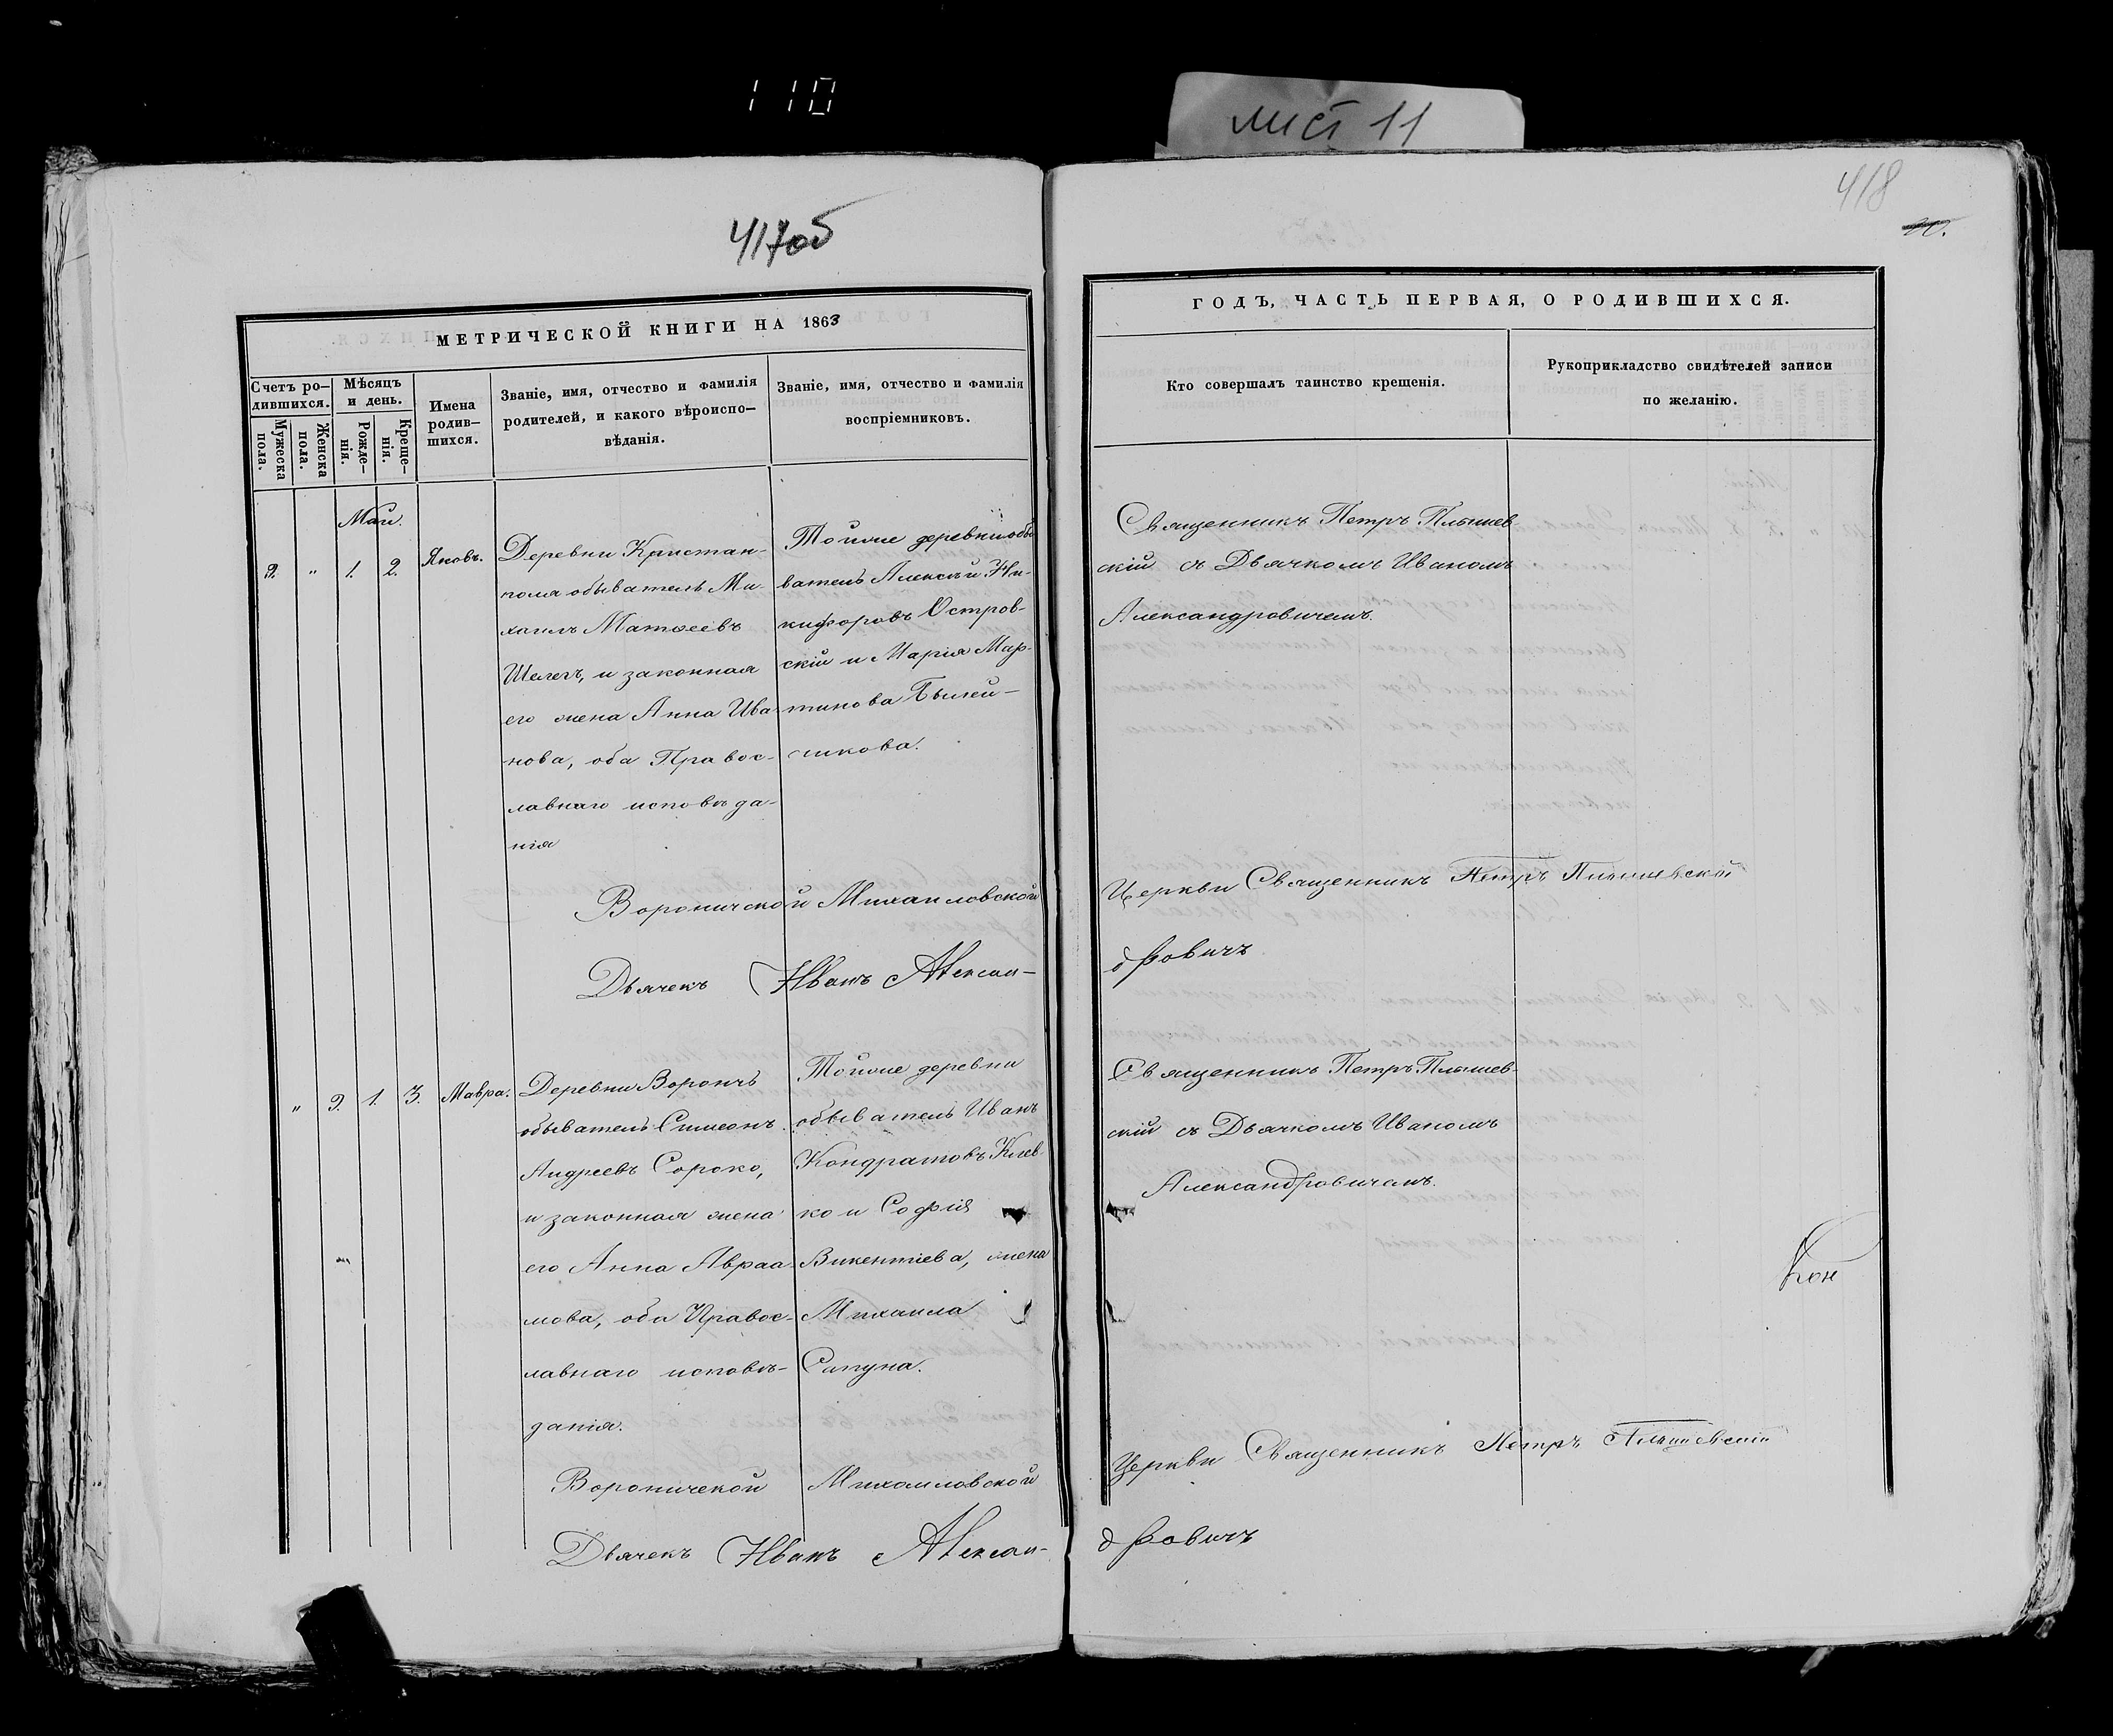 110
лист 11
417об
418
МЕТРИЧЕСКОЙ КНИГИ НА 1863
ГОДЪ, ЧАСТЬ ПЕРВАЯ, О РОДИВШИХСЯ.
Счетъ ро-
дившихся.
Мужеска
пола.
Женска
пола.
Мѣсяцъ
и день.
Рожде-
нія.
Креще-
нія.
Имена
родив-
шихся.
Званіе, имя, отчество и фамилія
родителей, и какого вѣроиспо-
вѣданія.
Званіе, имя, отчество и фамилія
воспріемниковъ.
Кто совершалъ таинство крещенія.
Рукоприкладство свидѣтелей записи
по желанію.
Маи.
9. " 1. 2. Яковъ.
Деревни Кристан-
поля обыватель Ми-
хаилъ Матѳеевъ
Шелегъ, и законная
его жена Анна Ива-
нова, оба Правос-
лавнаго исповѣда-
нія
Тойже деревни обы
ватель Алексѣй Ни-
кифоровъ Остров-
скій и Марія Мар-
тинова
никова.
Священникъ Петръ
скій съ Дьячкомъ Иваномъ
Александровичемъ.
Вороничской Михаиловской Церкви Священникъ Петръ
Дьячекъ Иванъ Алексан-
дровичъ
" 9. 1. 3. Мавра.
Деревни Воронечъ
обыватель Симеонъ
Андреевъ Сороко,
и законная жена
его Анна Авраа-
мова, оба Правос-
лавнаго исповѣ-
данія.
Тойже деревни
обыватель Иванъ
Кондратовъ
ко и Софія
Викентіева, жена
Михаила
Сапуна.
Священникъ Петръ
скій съ Дьячкомъ Иваномъ
Александровичемъ.
Кон
Вороничской Михаиловской Церкви Священникъ Петръ
Дьячекъ Иванъ Алексан-
дровичъ